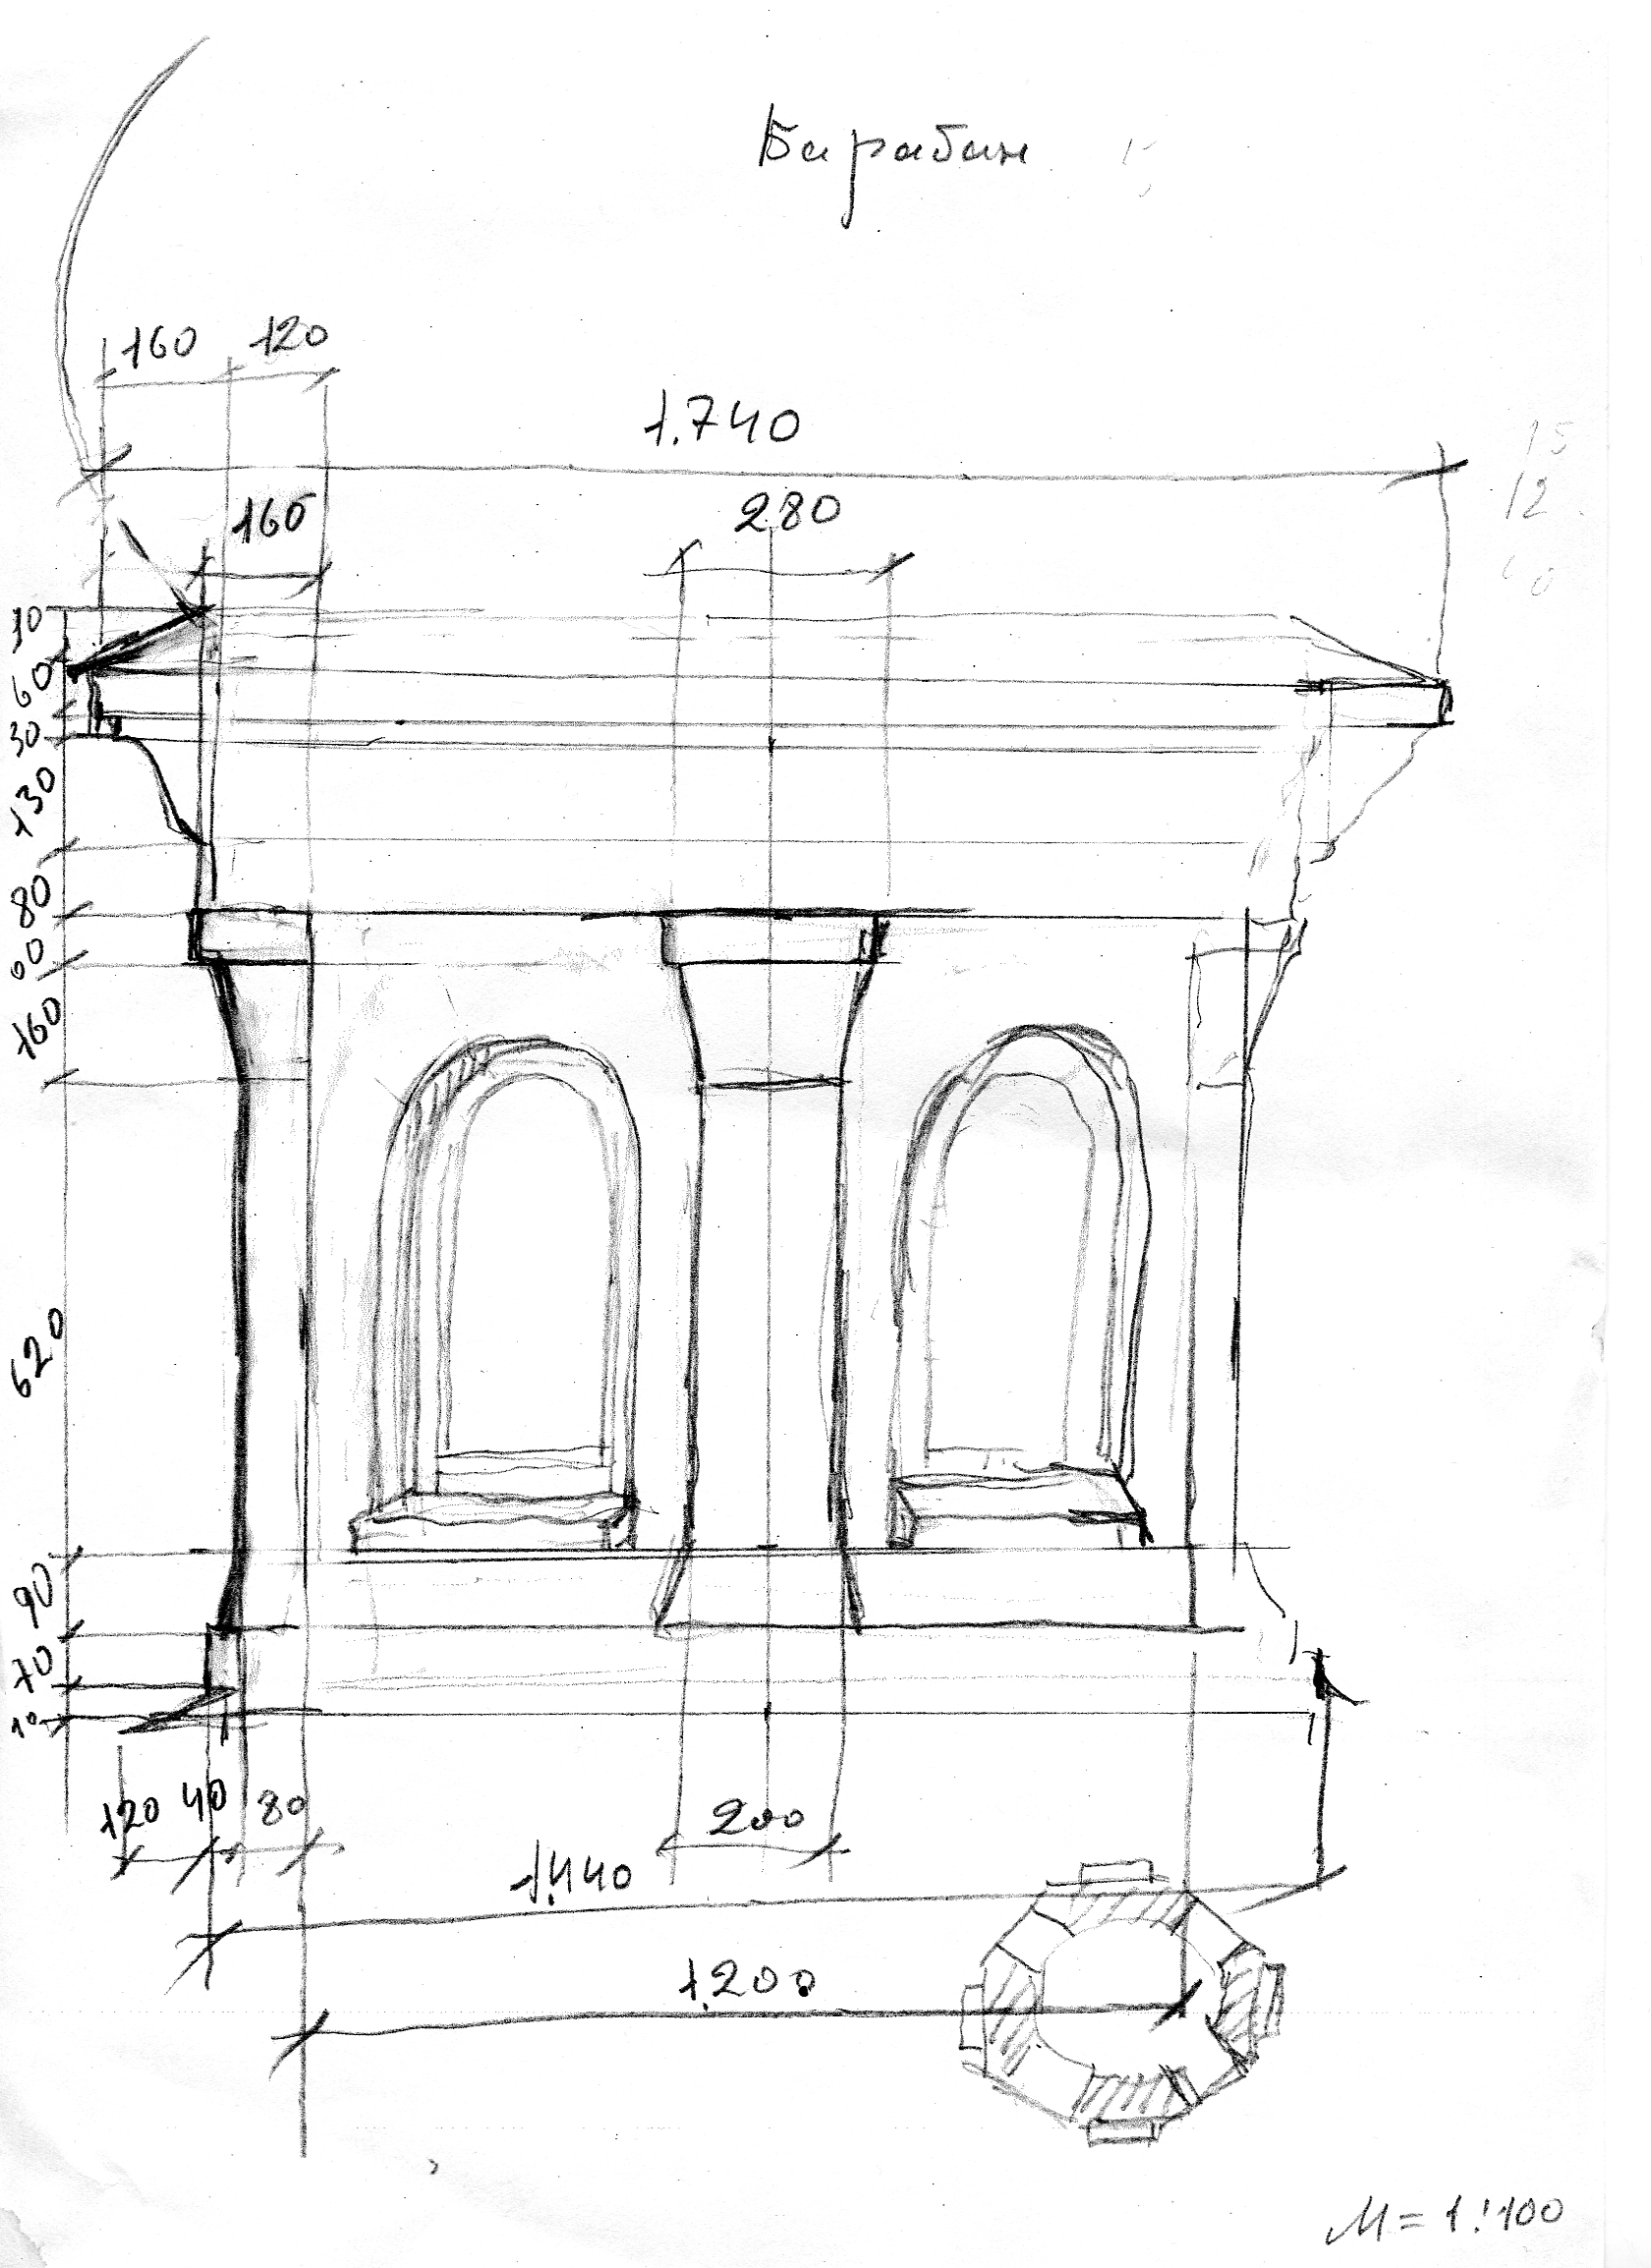 Барабан
160 120
1.740
160
280
10
60
30
130
80
60
160
620
90
70
10
120 40 80
200
1.440
1.200
М = 1:100